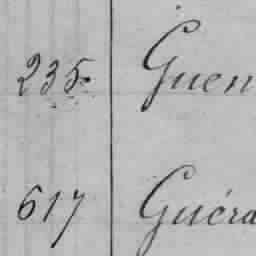 235. Guen
617 Guéra